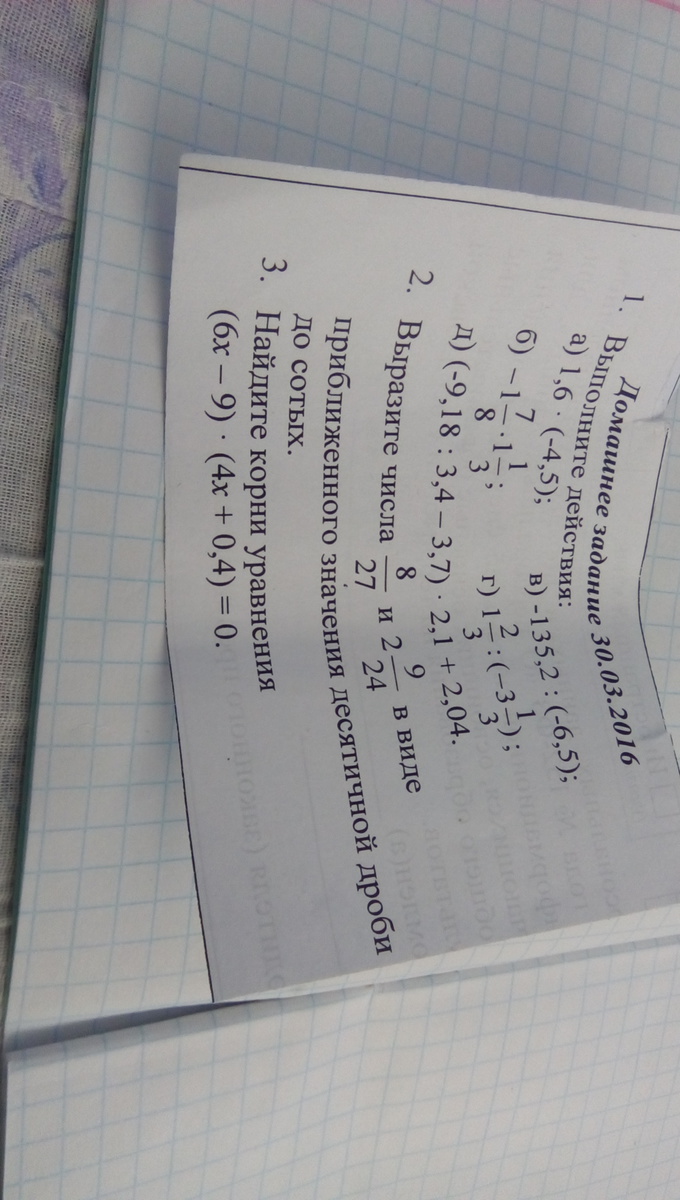 Домашнее задание 30.03.2016
1. Выполните действия:
а) 1,6 · (-4,5); в) -135,2 : (-6,5);
б) −1 7/8 · 1 1/3; г) 1 2/3 : (−3 1/3);
д) (-9,18 : 3,4 – 3,7) · 2,1 + 2,04.
2. Выразите числа 8/27 и 2 9/24 в виде
приближенного значения десятичной дроби
до сотых.
3. Найдите корни уравнения
(6x – 9) · (4x + 0,4) = 0.